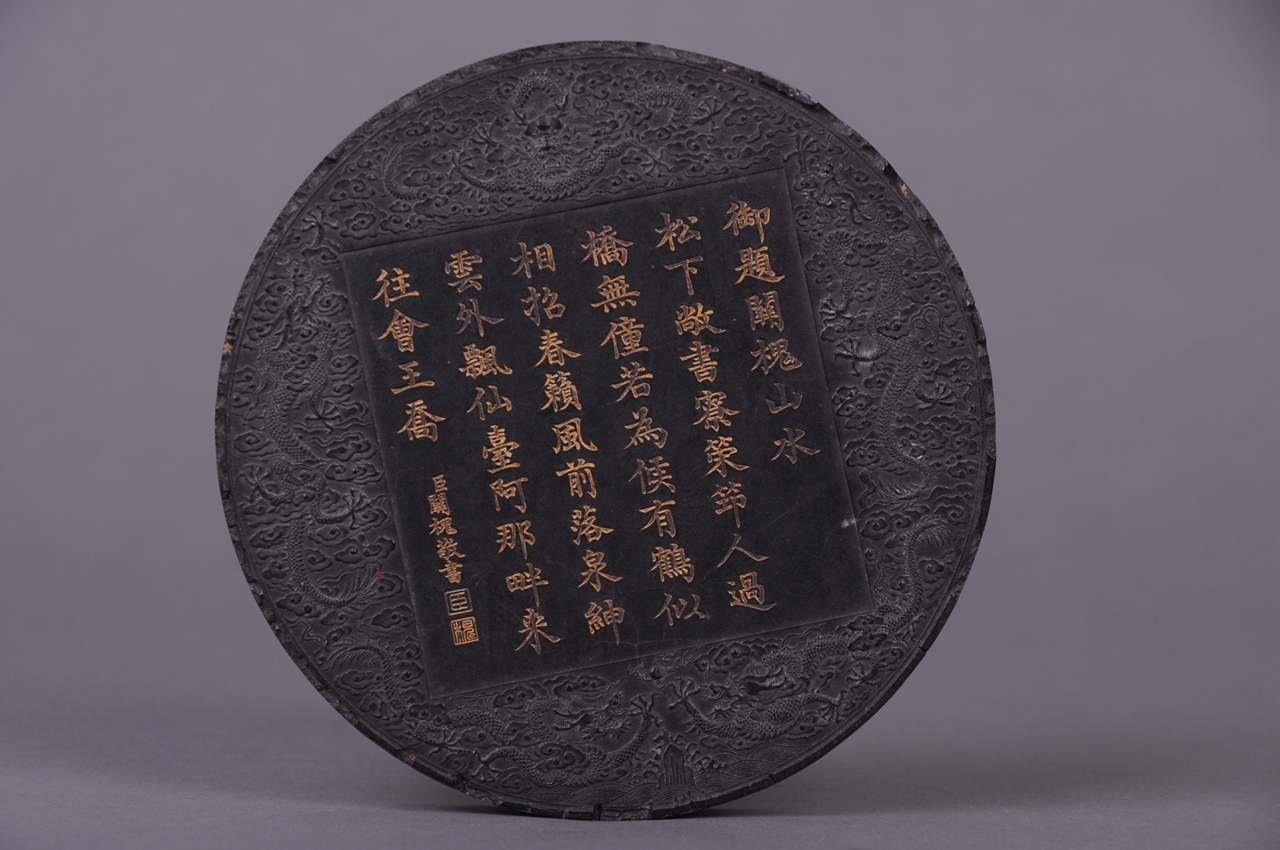 御題關槐山水
松下敞書寮榮茆人過
橋無僮若為候有鶴似
相招春籟風前落泉紳
雲外飄仙臺阿那畔来
往會王喬
臣關槐敬書
臣
槐